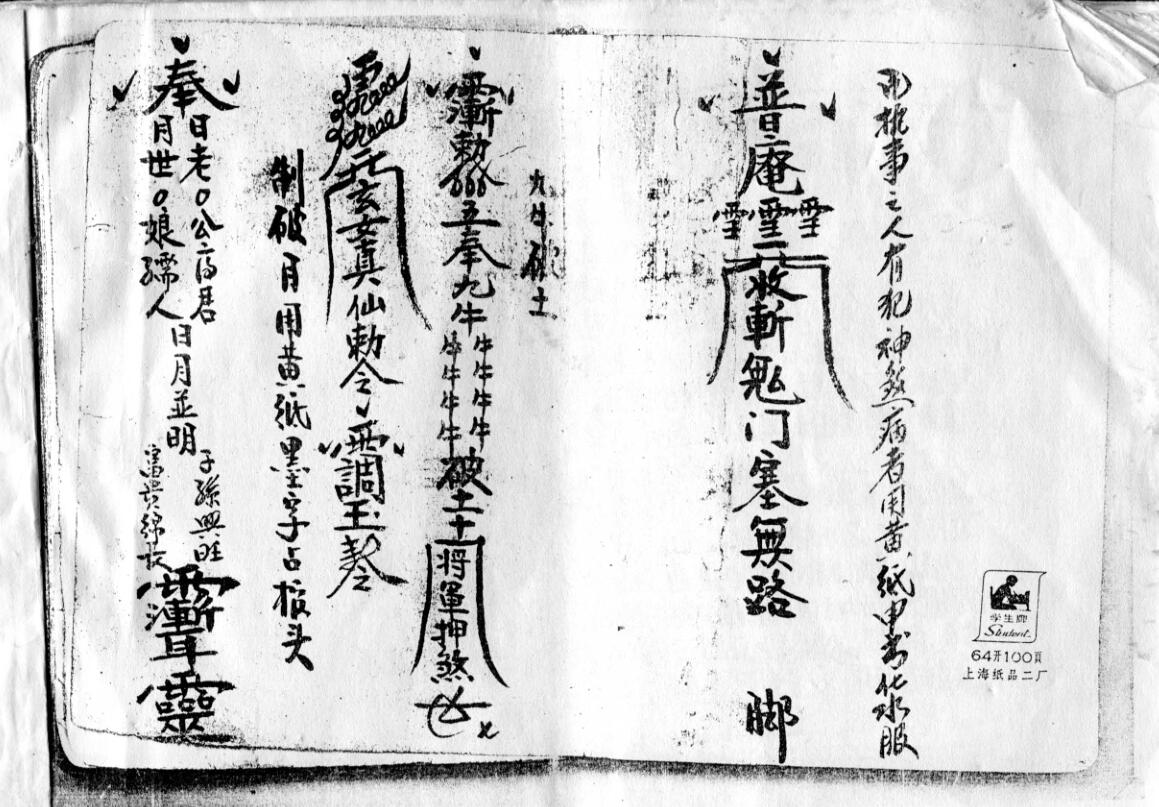 事之人有犯神煞病者用黄纸甲書化水服
普庵
雪雪雪
收斬鬼门塞無路
脚
学生牌
Student.
64开100頁
上海纸品二厂
九牛破土
勅
五奉九牛
牛牛牛牛
牛牛牛牛
破土
十
將軍押煞
玄女真仙勅令
調玉
制破月用黄紙墨字占棺头
奉
日老〇公府君
月世〇娘孺人
日月並明
子孫興旺
富贵綿長
靈